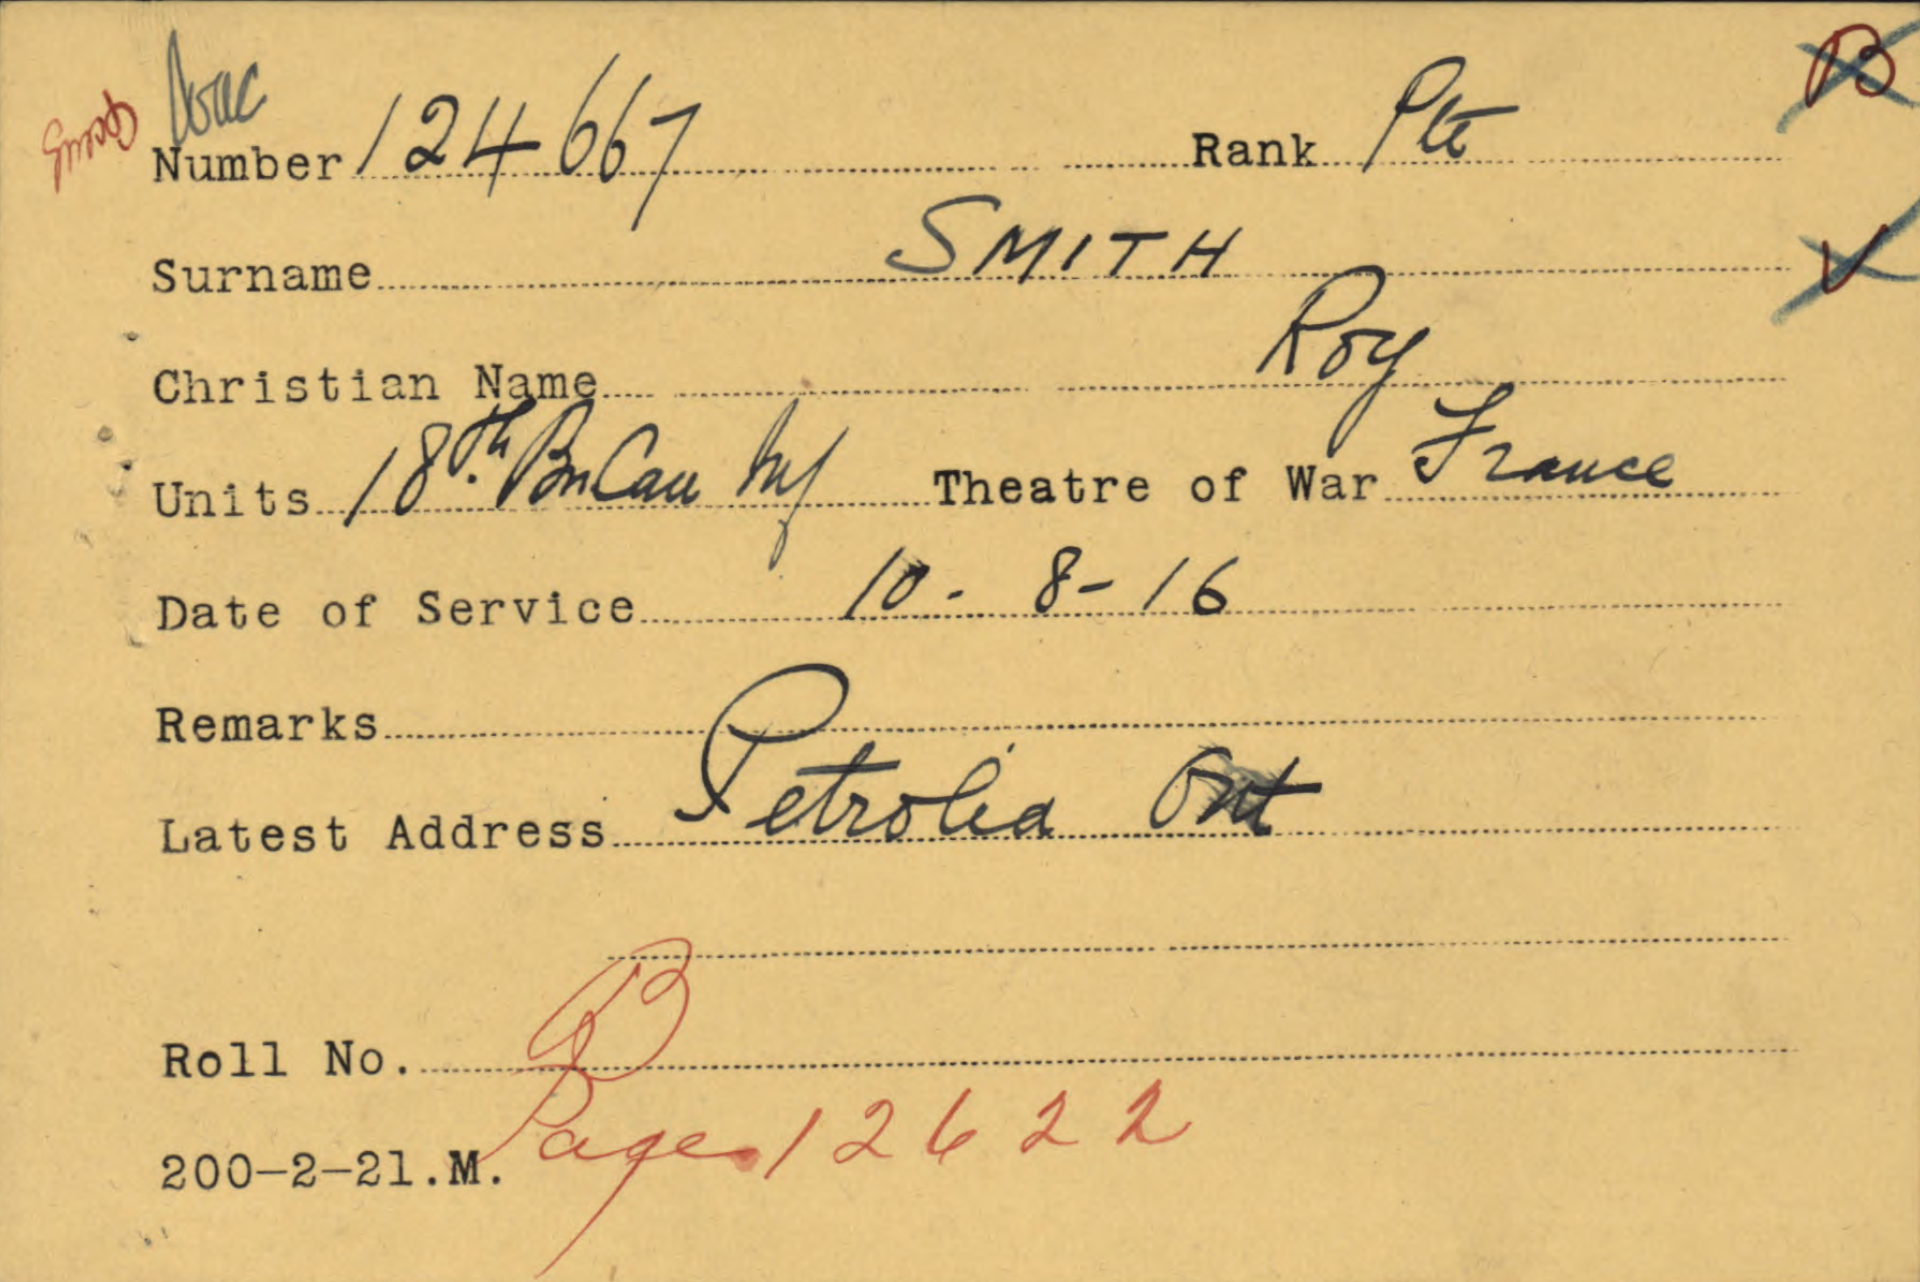 B
Number 124667 Rank Pte
Surname SMITH V
Christian Name Roy
Units 18th. Bn Can Inf Theatre of War France
Date of Service 10 - 8 - 16
Remarks
Latest Address Petrolia Ont
Roll No. B
Page 12622
200-2-21.M.